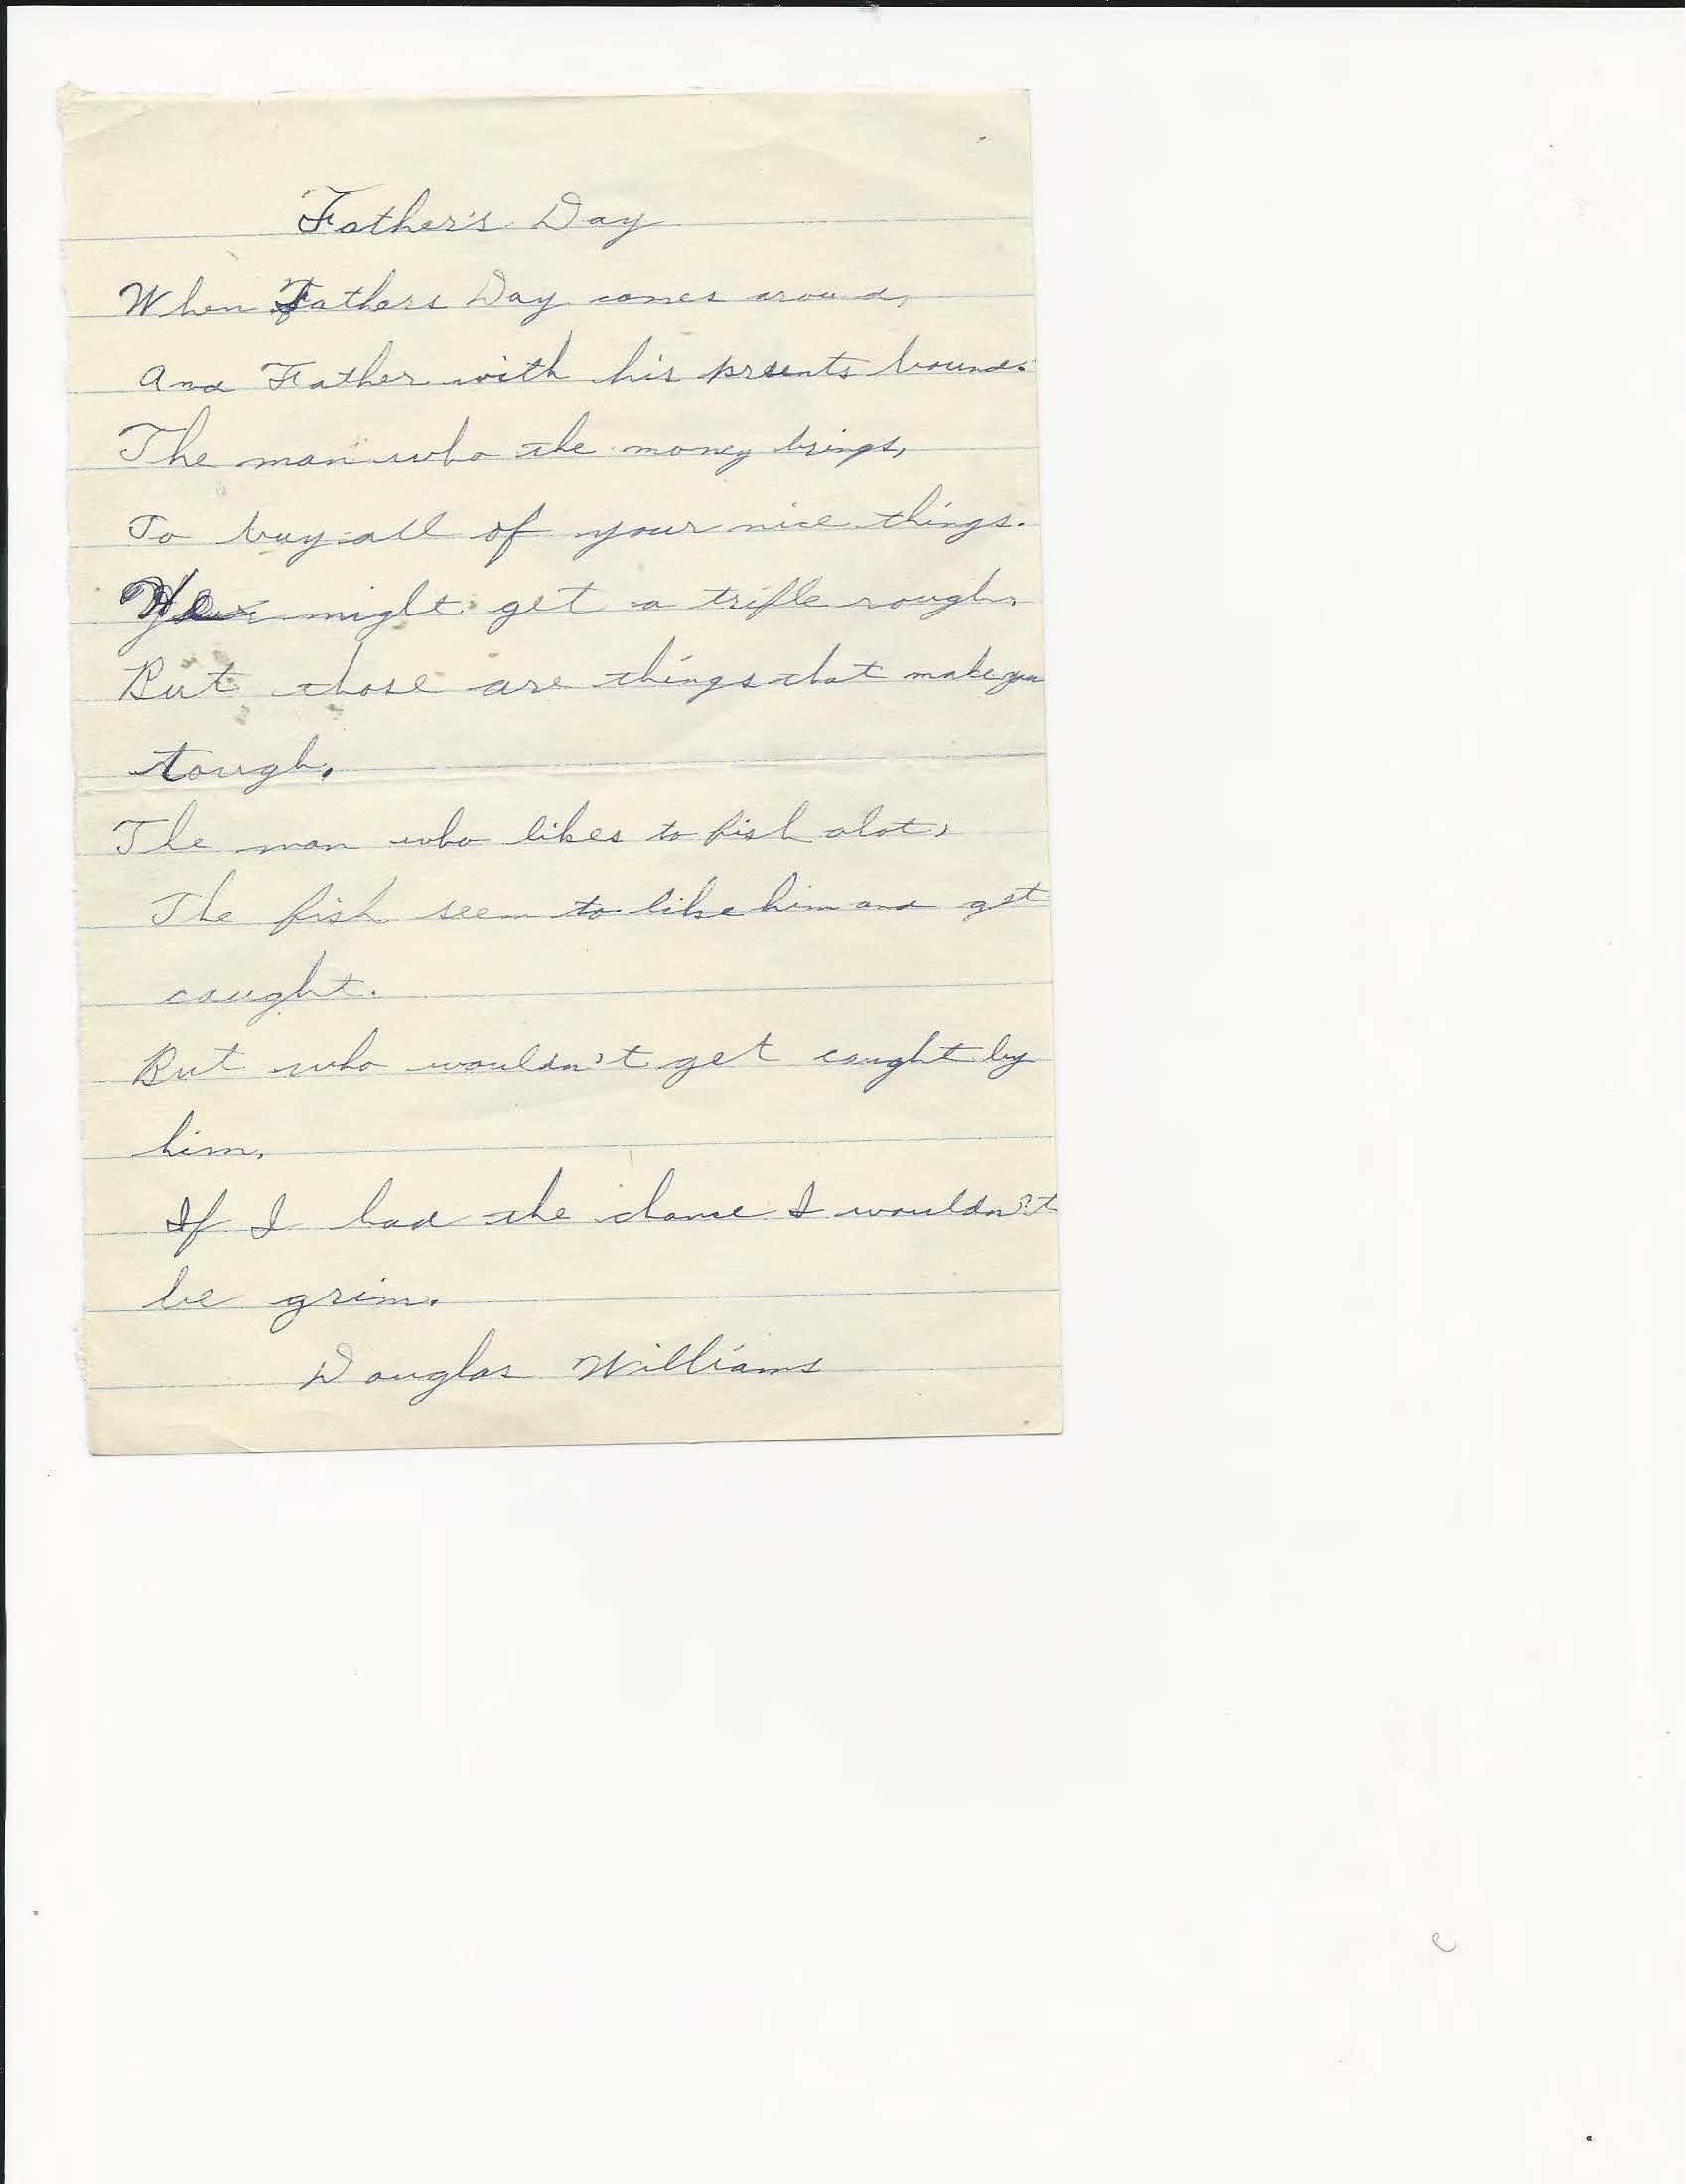 Father's Day
When Fathers Day comes around,
And Father with his prsents bound.
The man who the money brings,
To buy all of your nice things.
might get a trifle rough,
But those are things that make you
tough.
The man who likes to fish alot,
The fish seem to like him and get
caught.
But who wouldn't get caught by
him,
If I had the chance I wouldn't
be grim.
Douglas Williams